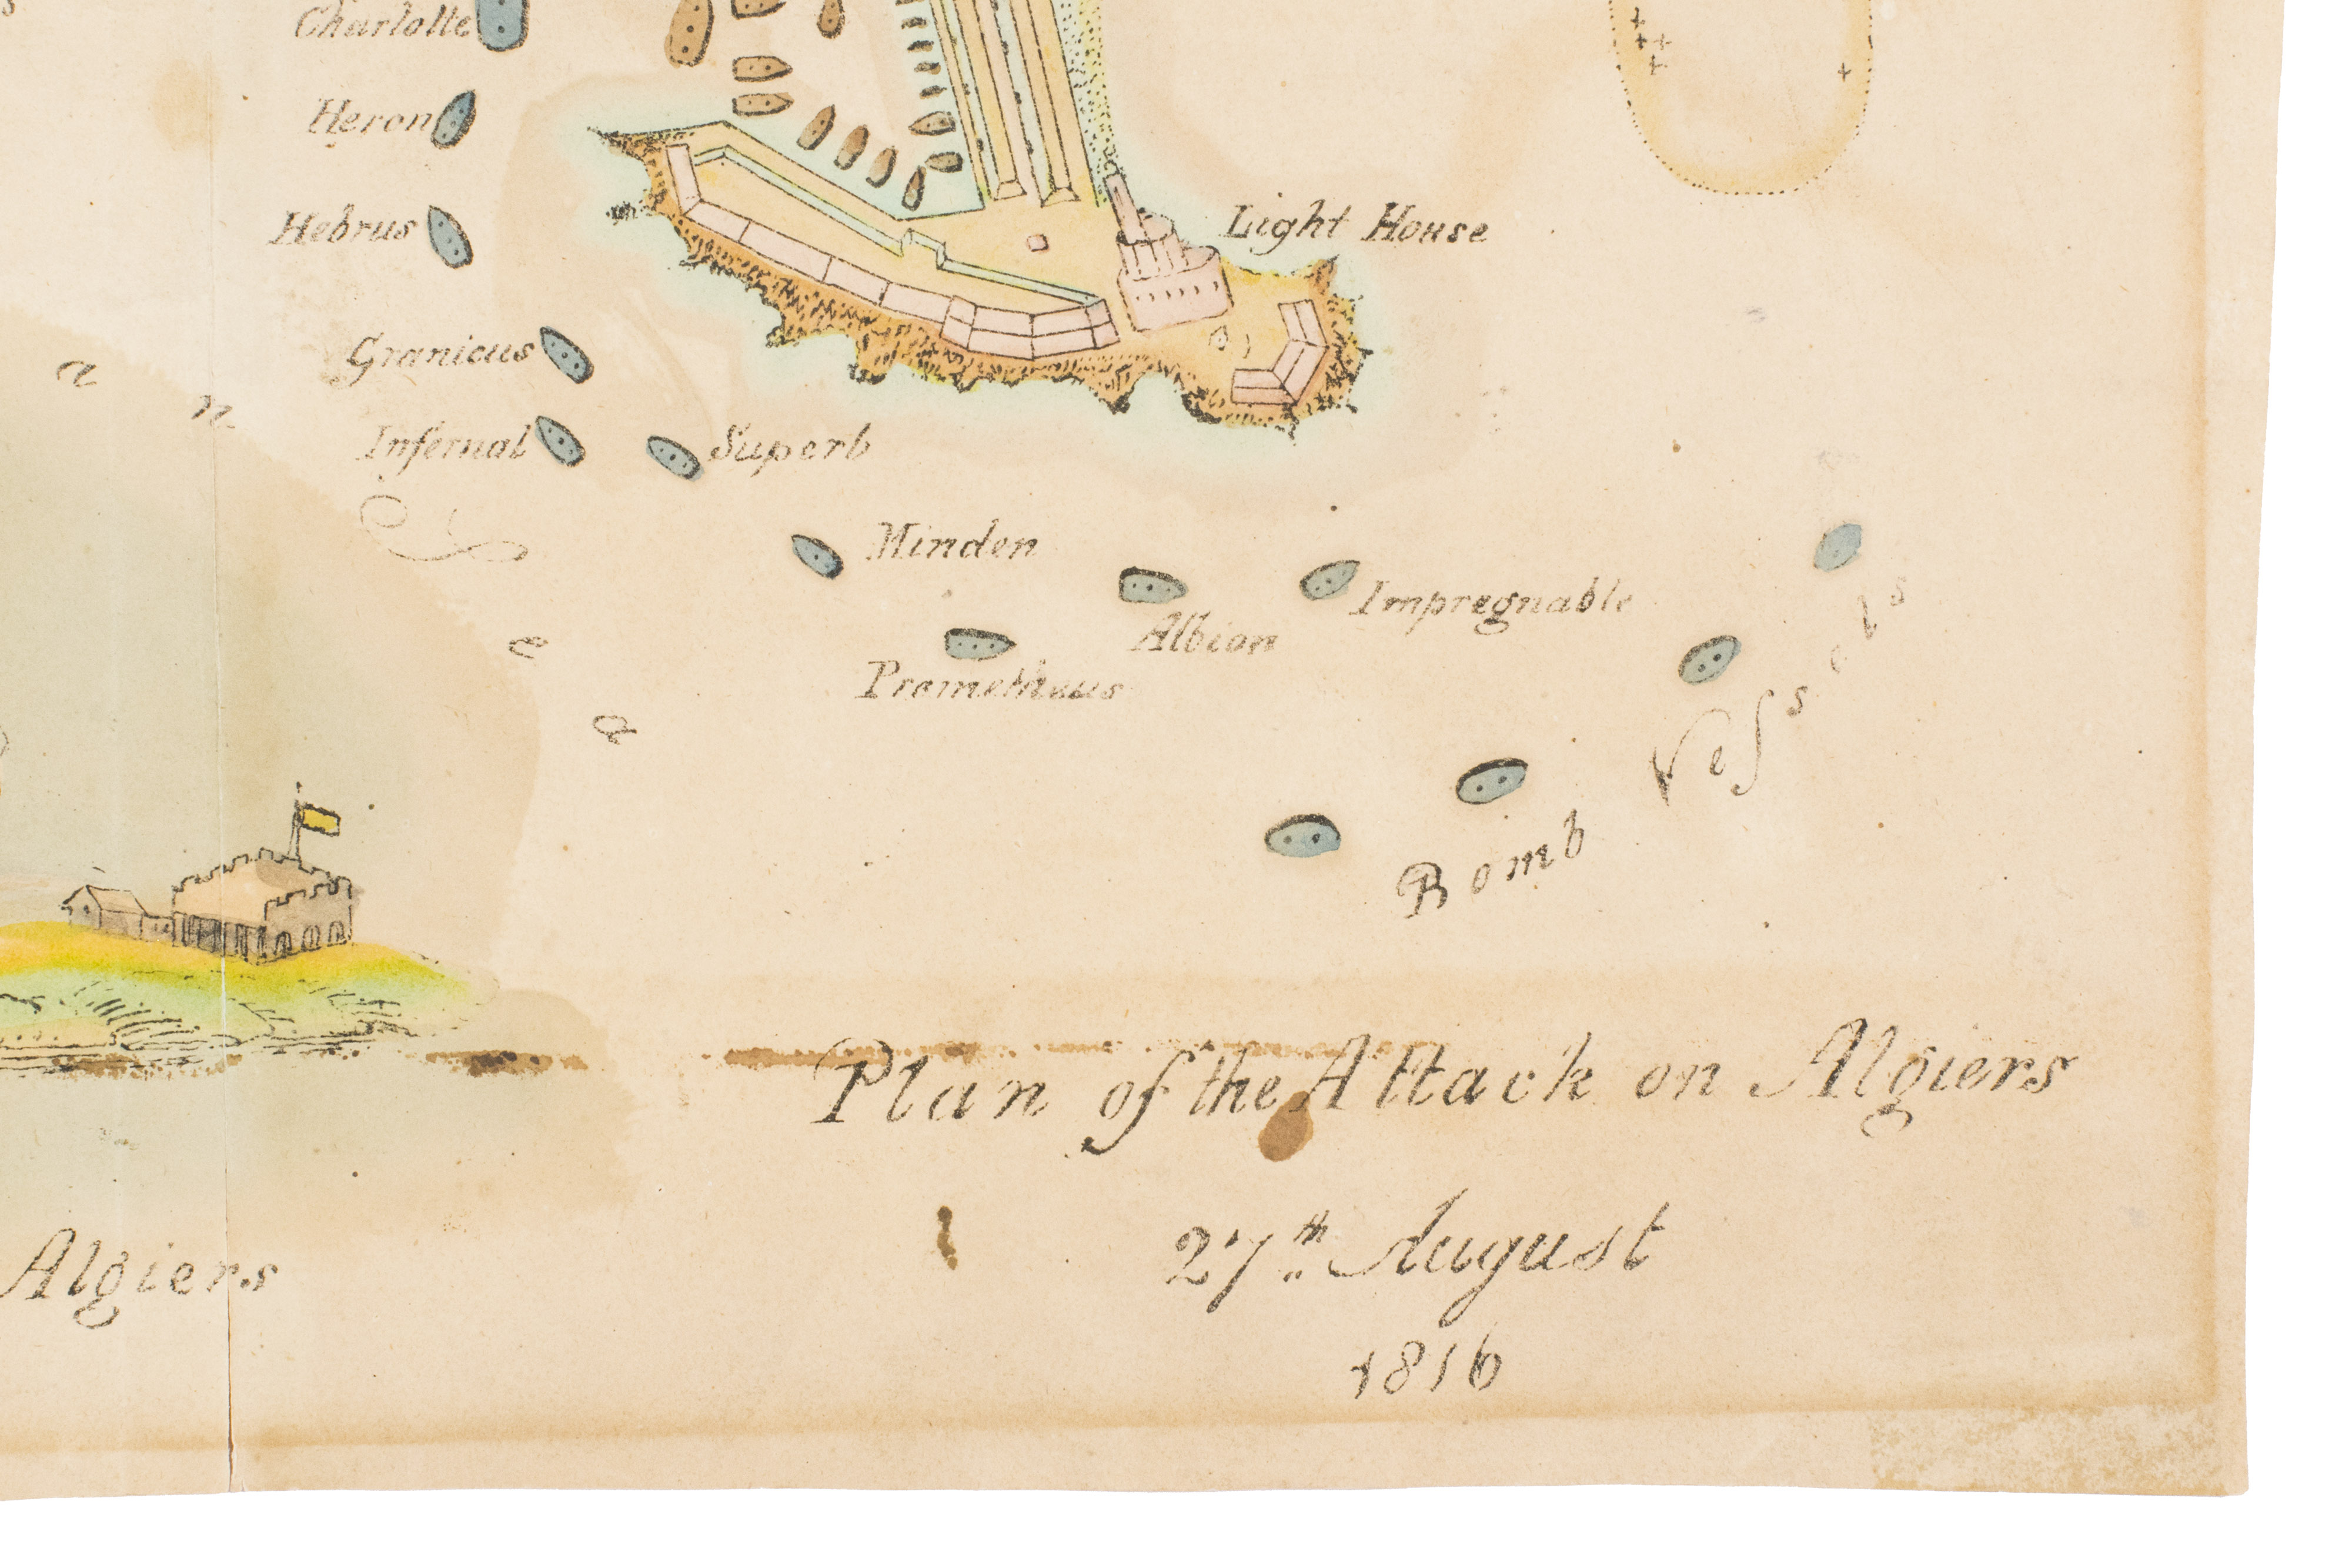 Charlotte
Heron
Hebrus
Light House
Granicus
Infernal
Superb
Minden
Impregnable
Albion
Prometheus
Bomb Vessels
Plan of the Attack on Algiers
27th August
1816
Algiers